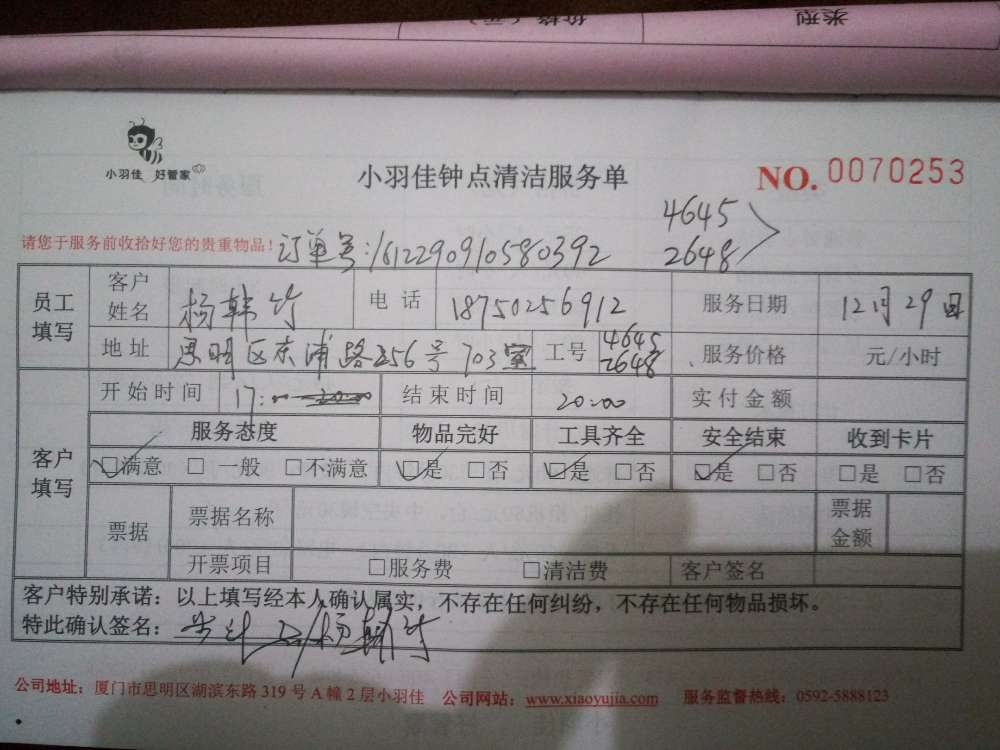 价格（元）
类型
小羽佳 好管家
小羽佳钟点清洁服务单
NO. 0070253
4645
2648
请您于服务前收拾好您的贵重物品！订单号:1612290910580392
员工填写 客户姓名 杨韩竹 电话 18750256912 服务日期 12月29日
地址 思明区东浦路256号703室 工号 4645 2648 服务价格 元/小时
开始时间 17:00 20:00 结束时间 20:00 实付金额
客户填写 服务态度 物品完好 工具齐全 安全结束 收到卡片
☑满意 □一般 □不满意 ☑是 □否 ☑是 □否 ☑是 □否 □是 □否
票据 票据名称 票据金额
开票项目 □服务费 □清洁费 客户签名
客户特别承诺：以上填写经本人确认属实，不存在任何纠纷，不存在任何物品损坏。
特此确认签名： 杨韩竹
公司地址：厦门市思明区湖滨东路319号A幢2层小羽佳 公司网站：www.xiaoyujia.com 服务监督热线：0592-5888123